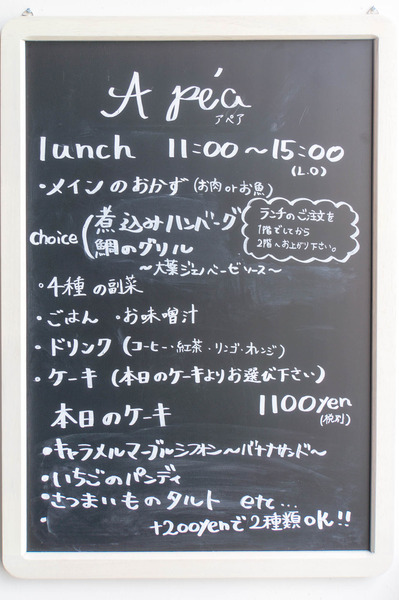 A péa
アペア
lunch 11:00〜15:00
(L.O)
・メインのおかず (お肉orお魚)
choice (煮込みハンバーグ
鯛のグリル
〜大葉ジェノベーゼソース〜
ランチのご注文を
1階でしてから
2階へお上がり下さい。
・4種の副菜
・ごはん ・お味噌汁
・ドリンク (コーヒー・紅茶・リンゴ・オレンジ)
・ケーキ (本日のケーキよりお選び下さい)
1100yen
(税別)
本日のケーキ
・キャラメルマーブルシフォン〜バナナサンド〜
・いちごのパンディ
・さつまいものタルト etc...
・ +200yenで2種類OK!!